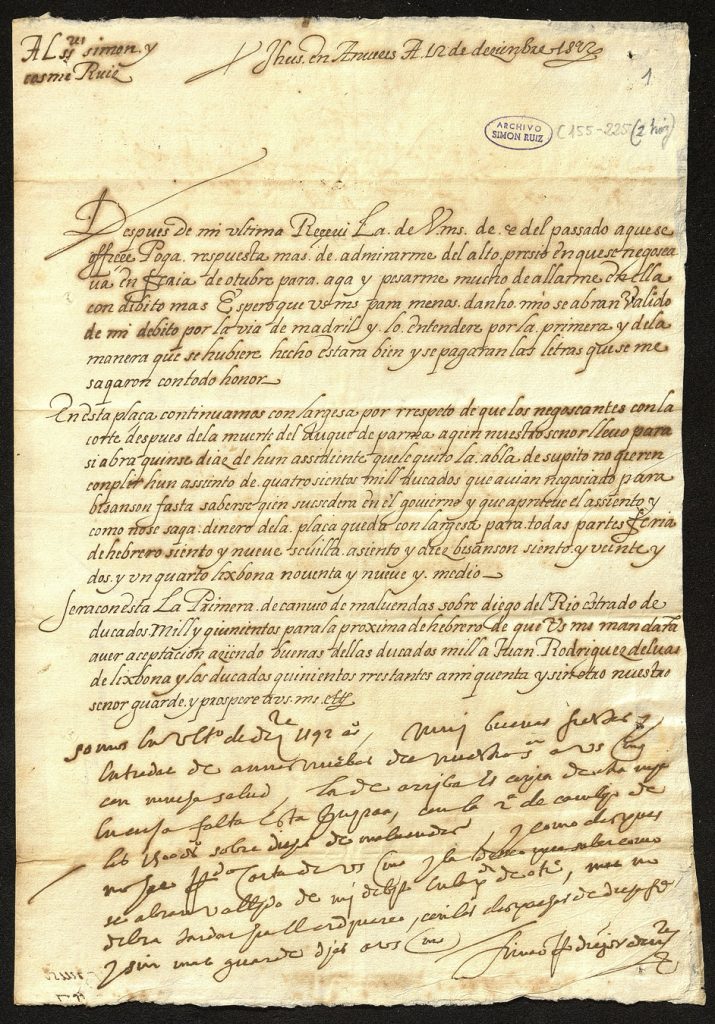 A Los sres simon. y
cosme Ruiz
Jhus. en Anveres A. 12 de decinbre 1592
1
ARCHIVO
SIMON RUIZ
C 155-225 (2 hoj)
Despues de mi vltima Recevi La. de V.ms. de. 2 del passado aquese
offrece Poqa. respuesta mas. de. admirarme del alto. presio en que se negosea
va en feria de otubre para. aqa y pesarme mucho de allarme en ella
con dibito mas Espero que vs ms para menos. danho. mio se abran valido
de mi debito por la via de madrill y. lo. entendere por la. primera. y de la
manera que se hubiere hecho estara bien y se pagaran las letras que se me
sagaron con todo honor
En esta plaça continuamos con largesa por rrespeto de que los negoseantes con la
corte despues de la muerte del duque de parma aqien nuestro senor llevo para
si abra quinse diaz de hun assediente que le quito la. abla. de supito no qieren
conplir hun assiento de. quatrosientos mill ducados que avian negosiado para
besanson fasta saberse qien sussedera en el governo y que aprueve el assiento y
como no se saga. dinero de la. plaça queda con largesa para. todas partes feria
de hebrero siento y nueve sevilla. asiento y diez besanson siento. y veinte y
dos. y vn quarto lixbona noventa y nueve y. medio
Sera con esta La Primera. de canbio de maluendas sobre diego del Rio estrado de
ducados mill y quinientos para la proxima de hebrero de que Vs ms mandara
aver aceptacion asiendo buenas dellas ducados mill a Juan Rodriguez
de lixbona y los ducados quinientos rrestantes a mi quenta y sin otro nuestro
senor guarde. y prospere a vs. ms. etc
somos en vlto de dre 1592 as, muy buenas fiestas y
entradas de annos nuebos de nuestro sr a vs ms
con mucha salud, La de ariba Es copia de
falta Esta con la 2a de canbio de
los 1500 ds sobre diego de maluenda, y como despues
no he carta de vs ms y
se abran valido de mi debito en la fa de ote, mas no
debra tardar
y sin mas guarde dios a vs ms